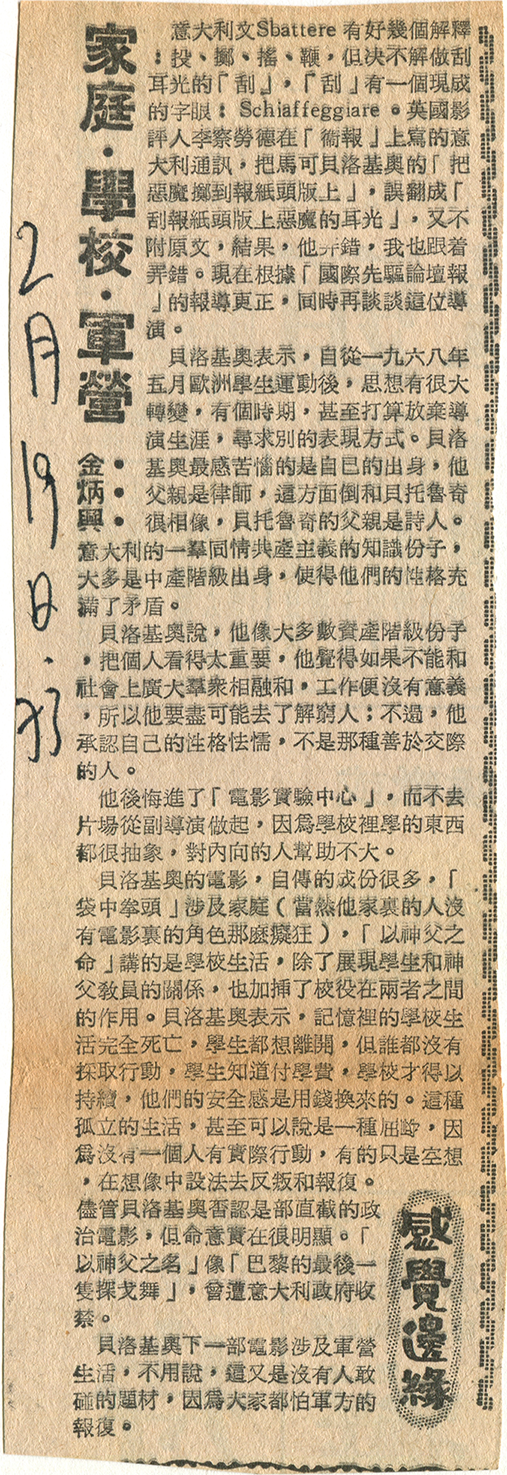 家庭·學校·軍營
金炳興
2月19日·73
感覺邊緣
意大利文Sbattere有好幾個解釋
：投、擲、搖、鞭，但决不解做刮
耳光的「刮」，「刮」有一個現成
的字眼：Schiaffeggiare。英國影
評人李察勞德在「衞報」上寫的意
大利通訊，把馬可貝洛基奧的「把
惡魔擲到報紙頭版上」，誤翻成「
刮報紙頭版上惡魔的耳光」，又不
附原文，結果，他弄錯，我也跟着
弄錯。現在根據「國際先驅論壇報
」的報導更正，同時再談談這位導
演。
貝洛基奧表示，自從一九六八年
五月歐洲學生運動後，思想有很大
轉變，有個時期，甚至打算放棄導
演生涯，尋求別的表現方式。貝洛
基奧最感苦惱的是自己的出身，他
父親是律師，這方面倒和貝托魯奇
很相像，貝托魯奇的父親是詩人。
意大利的一羣同情共產主義的知識份子，
大多是中產階級出身，使得他們的性格充
滿了矛盾。
貝洛基奧說，他像大多數資產階級份子
，把個人看得太重要，他覺得如果不能和
社會上廣大羣衆相融和，工作便沒有意義
，所以他要盡可能去了解窮人；不過，他
承認自己的性格怯懦，不是那種善於交際
的人。
他後悔進了「電影實驗中心」，而不去
片場從副導演做起，因爲學校裡學的東西
都很抽象，對內向的人幫助不大。
貝洛基奧的電影，自傳的成份很多，「
袋中拳頭」涉及家庭（當然他家裏的人沒
有電影裏的角色那麽癡狂），「以神父之
命」講的是學校生活，除了展現學生和神
父敎員的關係，也加揷了校役在兩者之間
的作用。貝洛基奧表示，記憶裡的學校生
活完全死亡，學生都想離開，但誰都沒有
採取行動，學生知道付學費，學校才得以
持續，他們的安全感是用錢換來的。這種
孤立的生活，甚至可以說是一種屈辱，因
爲沒有一個人有實際行動，有的只是空想
，在想像中設法去反叛和報復。
儘管貝洛基奧否認是部直截的政
治電影，但命意實在很明顯。「
以神父之名」像「巴黎的最後一
隻探戈舞」，曾遭意大利政府收
禁。
貝洛基奧下一部電影涉及軍營
生活，不用說，這又是沒有人敢
碰的題材，因爲大家都怕軍方的
報復。